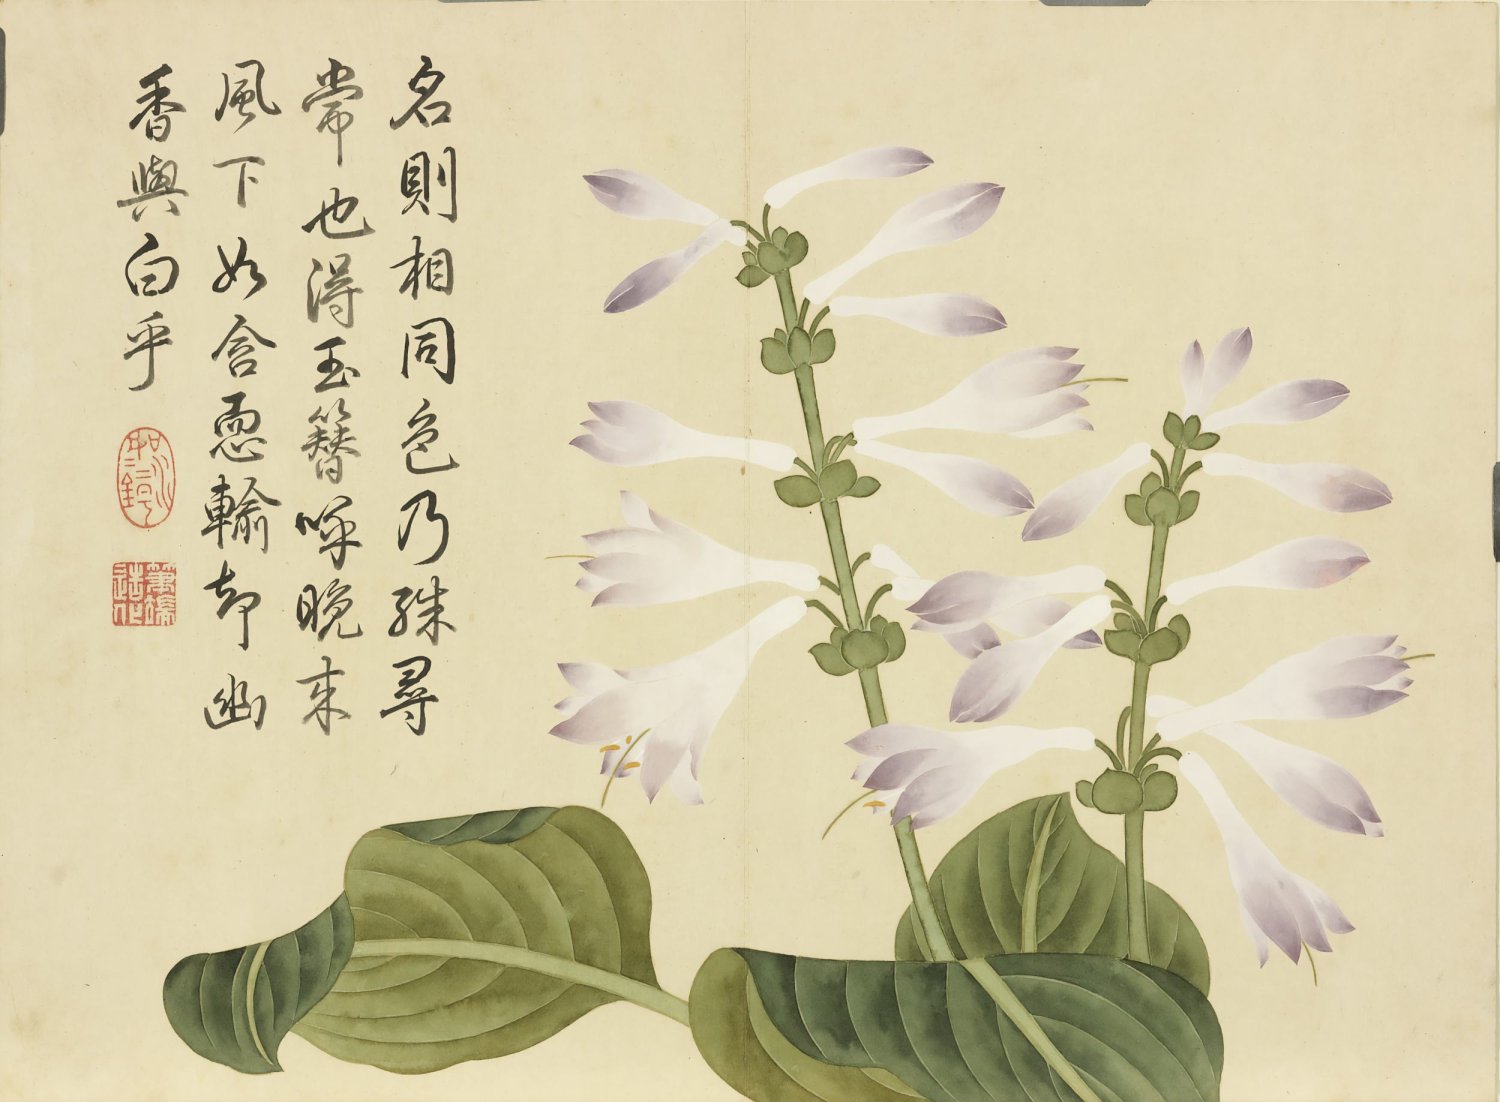 名則相同色乃殊尋
常也得玉簪呼晚來
風下如含恧輸却幽
香與白乎